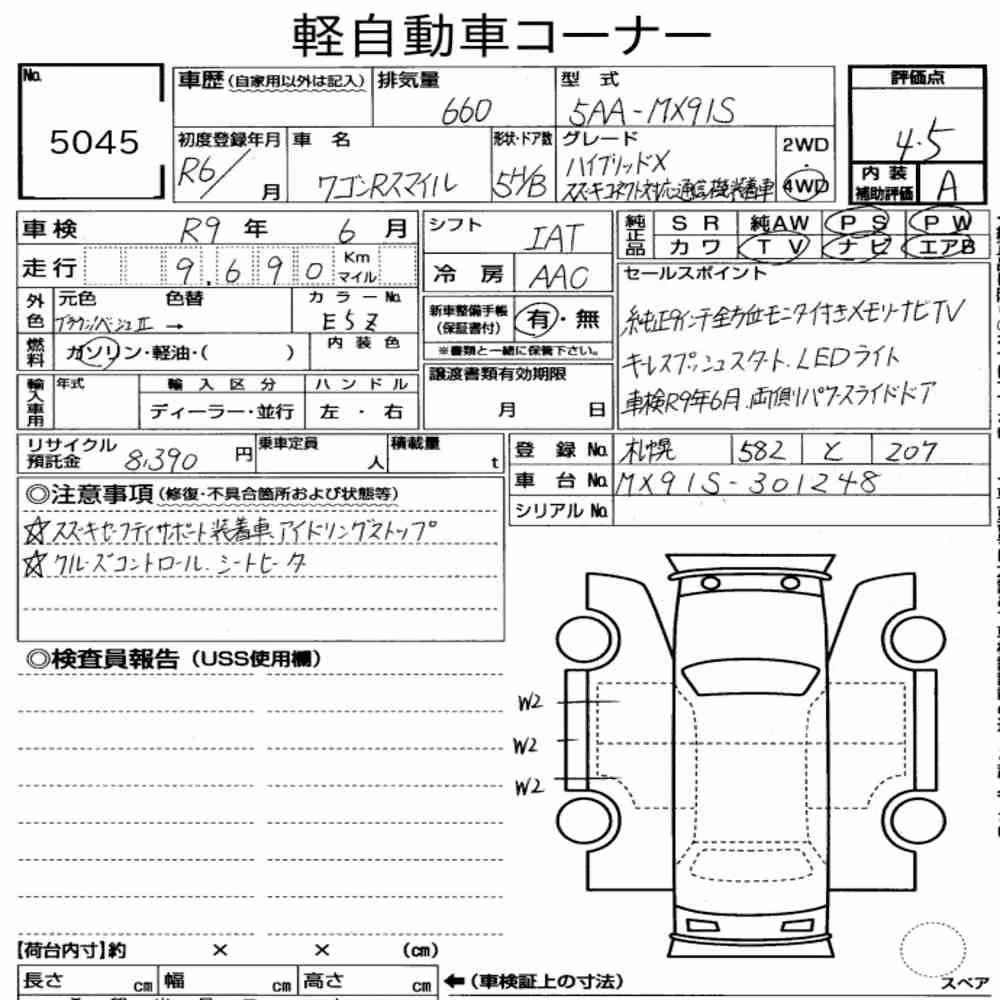 軽自動車コーナー
No. 5045
車歴 (自家用以外は記入) 排気量 660
型式 5AA-MX91S
評価点 4.5
初度登録年月 R6/ 月
車名 ワゴンRスマイル
形状・ドア数 5H/B
グレード ハイブリッドX
スズキコネクト対応通信機装着車
2WD
4WD
内装補助評価 A
車検 R9年 6月
シフト IAT
純正品 SR 純AW PS PW
カワ TV ナビ エアB
走行 9,690 Km マイル
冷房 AAC
セールスポイント
純正9インチ全方位モニタ付きメモリーナビTV
キーレスプッシュスタート、LEDライト
車検R9年6月、両側パワースライドドア
外色 元色 色替 カラーNo.
ブラウン/ベージュII → ESZ
新車整備手帳(保証書付) 有・無
※書類と一緒に保管下さい。
燃料 ガソリン・軽油・( ) 内装色
譲渡書類有効期限
月 日
輸入車用 年式 輸入区分 ハンドル
ディーラー・並行 左・右
リサイクル預託金 8,390円 乗車定員 人 積載量 t
登録No. 札幌 582 と 207
車台No. MX91S-301248
シリアルNo.
◎注意事項 (修復・不具合箇所および状態等)
☆スズキセーフティサポート装着車、アイドリングストップ
☆クルーズコントロール、シートヒータ
◎検査員報告 (USS使用欄)
W2
W2
W2
【荷台内寸】約 × × (cm)
長さ cm 幅 cm 高さ cm ←(車検証上の寸法)
スペア